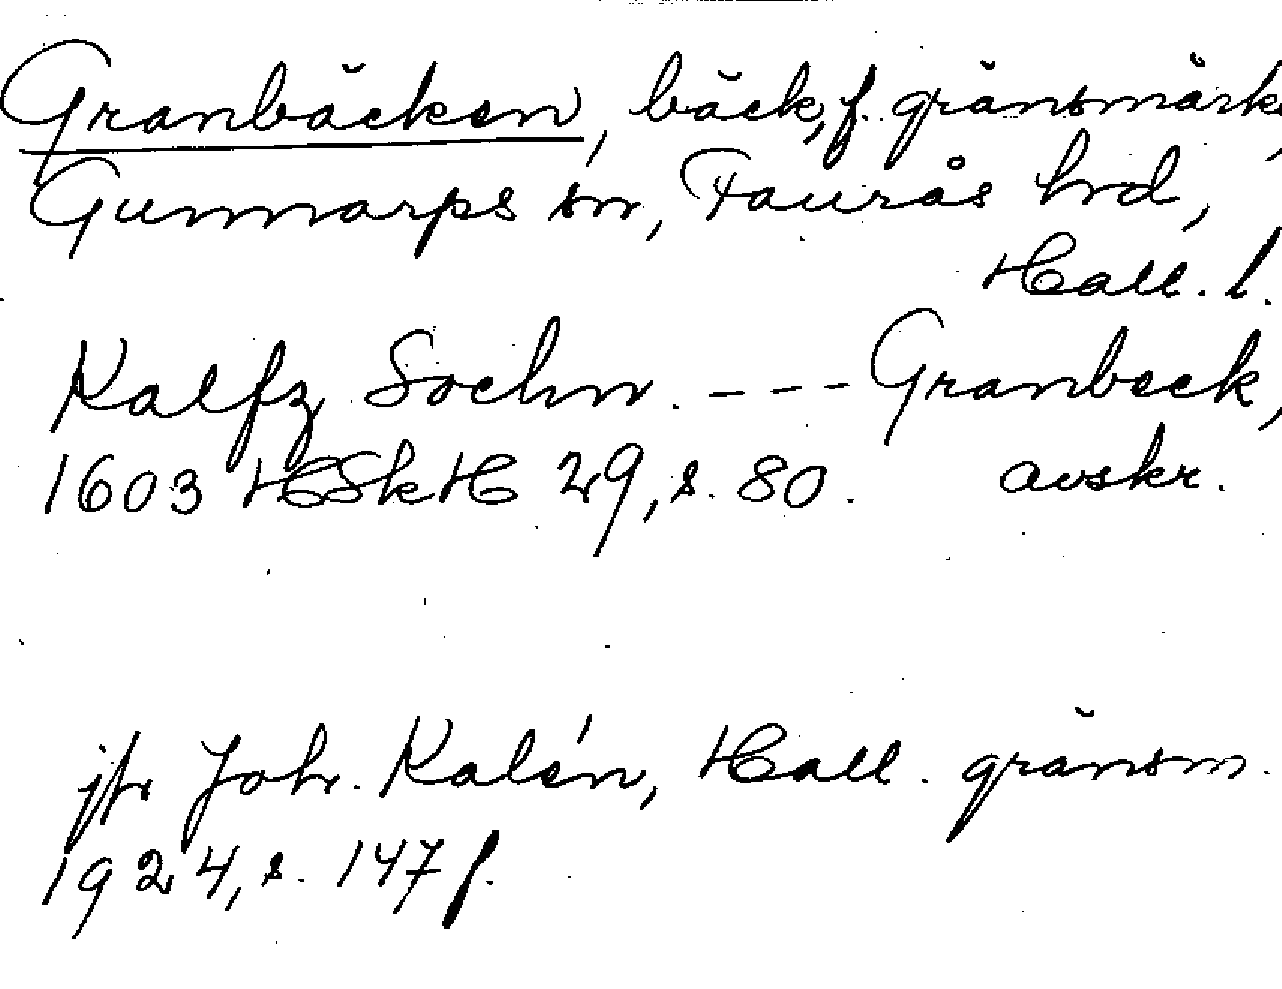 Granbäcken, bäck, f. gränsmärk,
Gunnarps sn, Faurås hrd,
Hall. l.
Kalfz Sochn. --- Granbeck,
1603 HSkH 29, s. 80. avskr.
jfr Joh. Kalén, Hall. gränsm.
1924, s. 147 f.